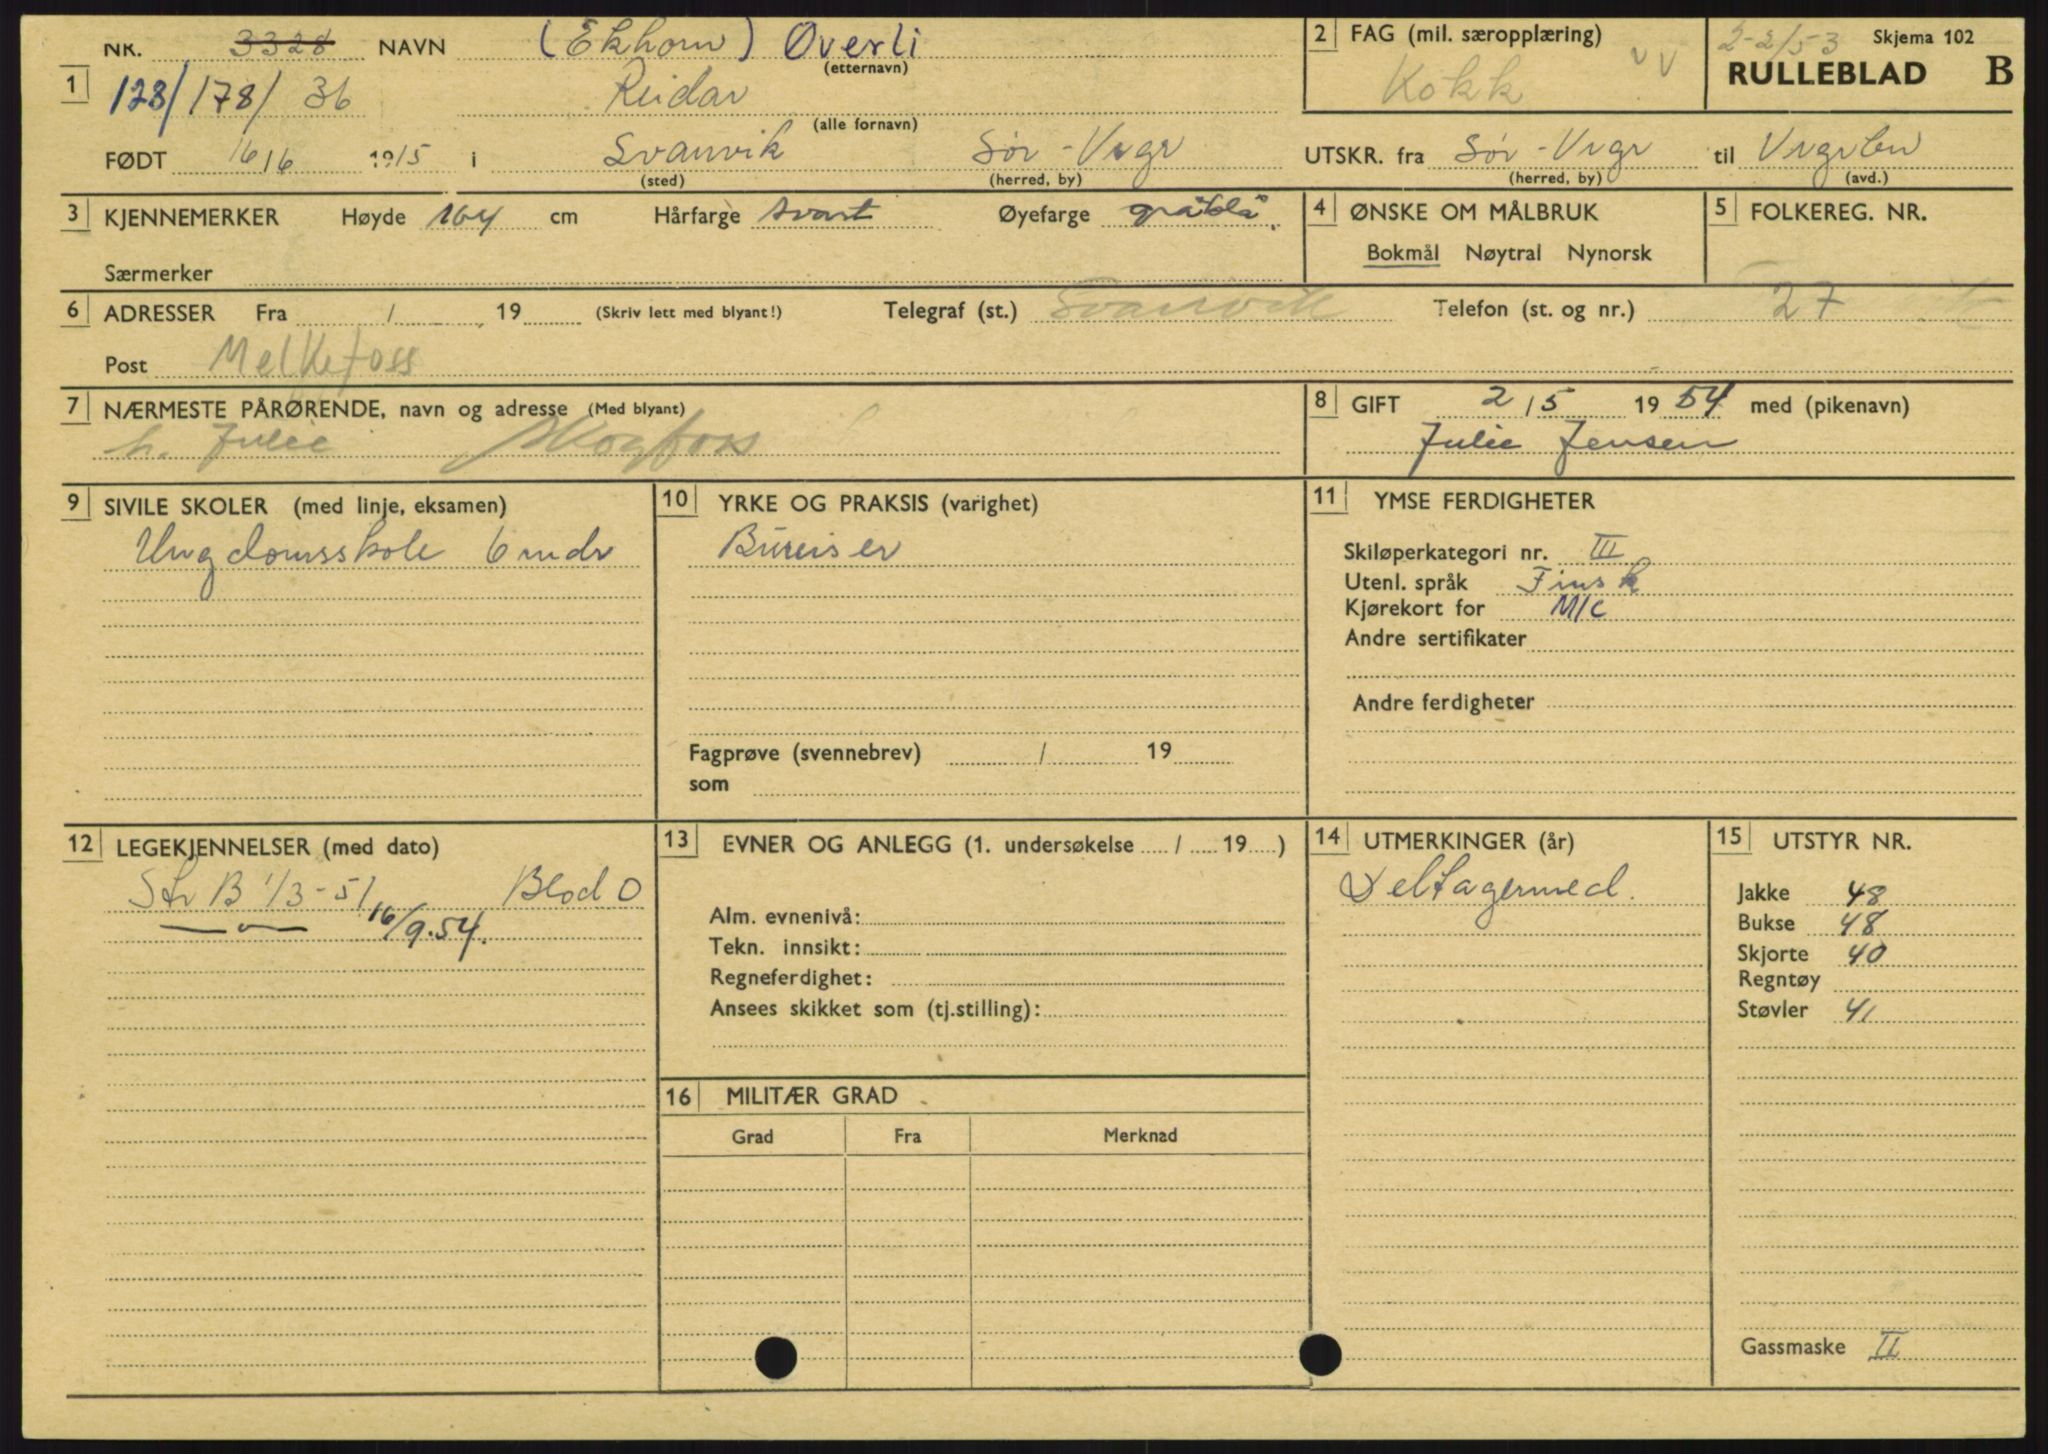 NR. 3328 NAVN (Ekhorn) Øverli
(etternavn)
1 128/178/36 Reidar
(alle fornavn)
FØDT 16/6 1915 i Svanvik Sør-Vrgr
(sted) (herred, by)
2 FAG (mil. særopplæring)
Kokk
2-2/53 Skjema 102
RULLEBLAD B
UTSKR. fra Sør-Vrgr til
(herred, by) (avd.)
3 KJENNEMERKER Høyde 164 cm Hårfarge svart Øyefarge gråblå
Særmerker
4 ØNSKE OM MÅLBRUK
Bokmål Nøytral Nynorsk
5 FOLKEREG. NR.
6 ADRESSER Fra / 19 (Skriv lett med blyant!) Telegraf (st.) Svanvik Telefon (st. og nr.) 27
Post Melkefoss
7 NÆRMESTE PÅRØRENDE, navn og adresse (Med blyant)
h. Julie Skogfoss
8 GIFT 2/5 1954 med (pikenavn)
Julie Jensen
9 SIVILE SKOLER (med linje, eksamen)
Ungdomsskole 6 mdr
10 YRKE OG PRAKSIS (varighet)
Bureiser
Fagprøve (svennebrev) / 19
som
11 YMSE FERDIGHETER
Skiløperkategori nr. III
Utenl. språk Finsk
Kjørekort for M/C
Andre sertifikater
Andre ferdigheter
12 LEGEKJENNELSER (med dato)
Str B 1/3-51 Blod O
—"— 16/9.54.
13 EVNER OG ANLEGG (1. undersøkelse / 19 )
Alm. evnenivå:
Tekn. innsikt:
Regneferdighet:
Ansees skikket som (tj.stilling):
14 UTMERKINGER (år)
Deltagermed.
15 UTSTYR NR.
Jakke 48
Bukse 48
Skjorte 40
Regntøy
Støvler 41
Gassmaske II
16 MILITÆR GRAD
Grad Fra Merknad